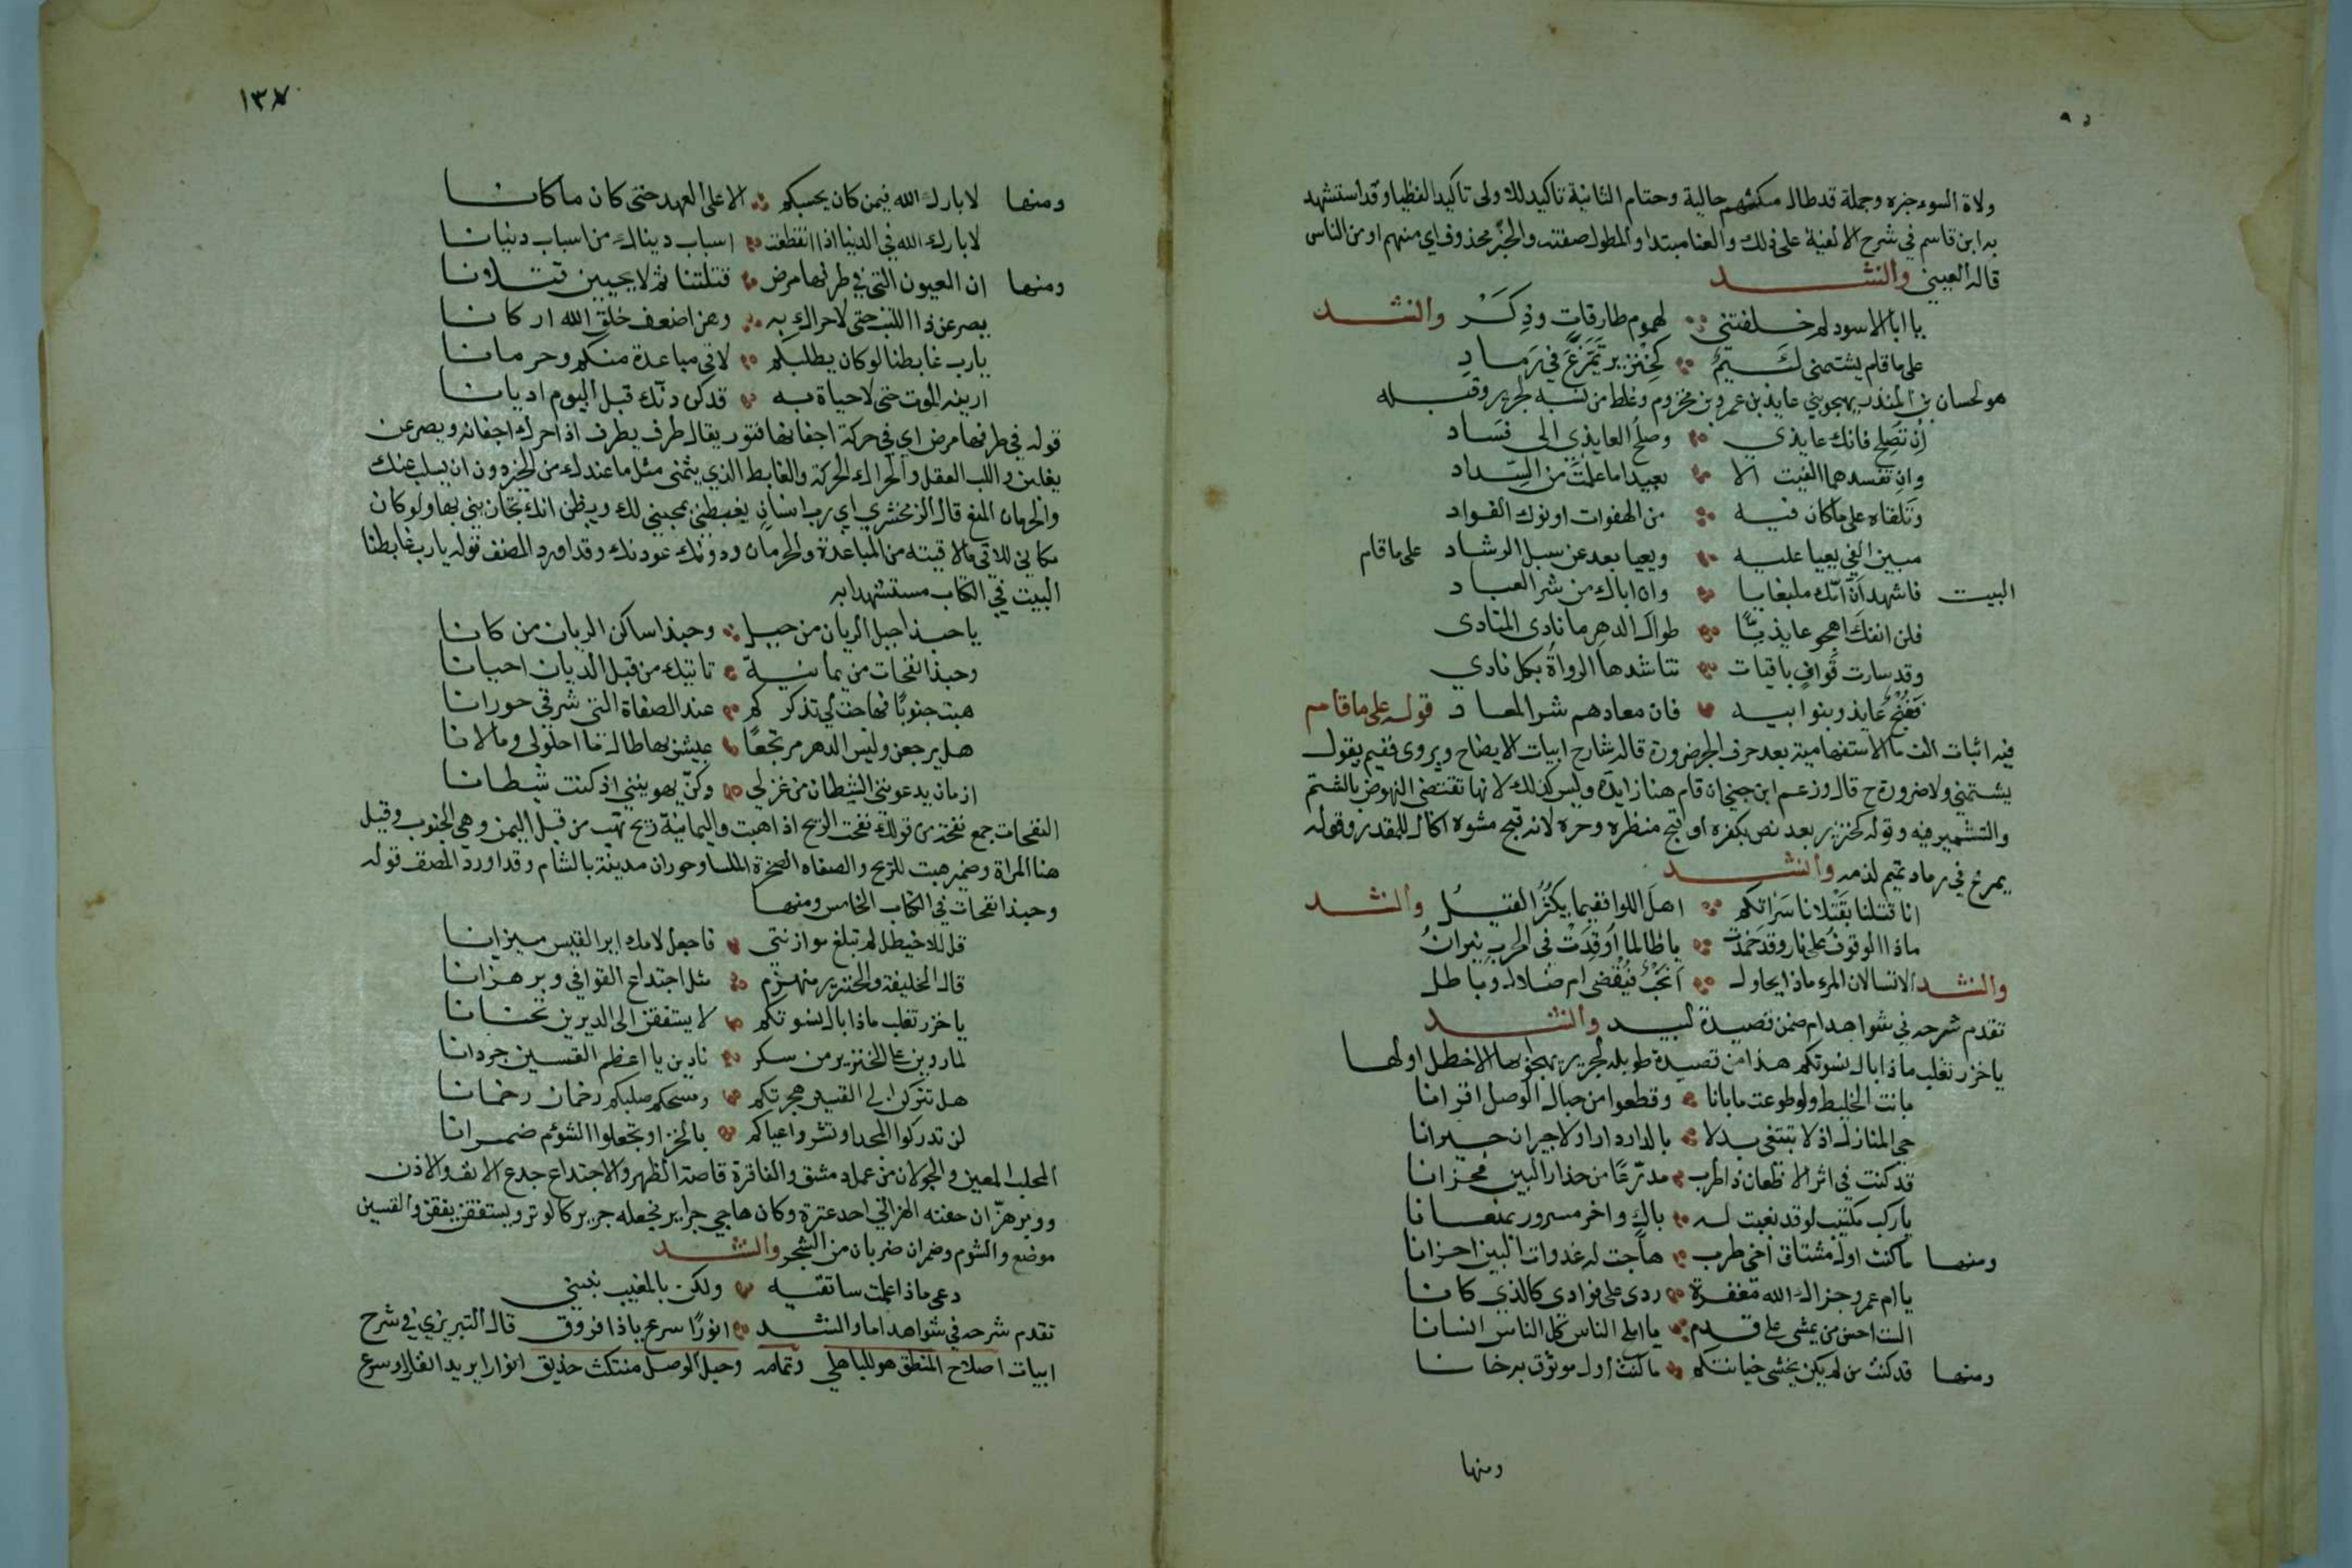 ولاة السوء خبره وجملة قد طال مكثهم حالية وحتام الثانية تاكيد للاولى تاكيدا لفظيا وقد استشهد
به ابن قاسم في شرح الالفية على ذلك والعنا مبتدا والمطول صفته والخبر محذوف اي منهم او من الناس
قاله العيني وانشد
يا ابا الاسود لم خلفتني لهموم طارقات وذكر وانشد
على ما قام يشتمني لئيم كخنزير تمرغ في رماد
هو لحسان بن المنذر يهجو بني عايذ بن عمرو بن مخزوم وغلط من نسبه لجرير وقبله
ان تصلح فانك عايذي وصلح العايذي الى فساد
وان تفسد فما الفيت الا بعيدا ما علمت من السداد
وتلقاه على ما كان فيه من الهفوات او نوك الفواد
مبين الغي يعيا عليه ويعيا بعد عن سبل الرشاد على ما قام
البيت فاشهد ان امك ملبغايا وان اباك من شر العباد
فلن انفك اهجو عايذيا طوال الدهر ما نادى المنادى
وقد سارت قواف باقيات تناشدها الرواة بكل نادي
فقبح عايذ وبنو ابيه فان معادهم شر المعاد قوله على ما قام
فيه اثبات الف ما الاستفهامية بعد حرف الجر ضرورة قال شارح ابيات الايضاح ويروى ففيم يقول
يشتمني ولا ضرورة ح قال وزعم ابن جني ان قام هنا زايدة وليس كذلك لانها تقتضى النهوض بالشتم
والتشمير فيه وقوله كخنزير بعد نص بكفره او قبح منظره وخره لانه قبيح مشوه اكال للقذر وقوله
يمرغ في رماد تميم لذمه وانشد
انا قتلنا بقتلانا سراتكم اهل اللوا ففيما يكثر القيل وانشد
ماذا الوقوف على نار وقد خمدت يا طالما اوقدت في الحرب نيران
وانشد الا تسالان المرء ماذا يحاول انحب فيقضى ام ضلال وباطل
تقدم شرحه في شواهد ام ضمن قصيدة لبيد وانشد
يا خزر تغلب ماذا بال نسوتكم هذا من قصيدة طويلة لجرير يهجو بها الاخطل اولها
بانت الخليط ولو طوعت ما بانا وقطعوا من حبال الوصل اقرانا
حي المنازل اذ لا تبتغي بدلا بالدار دارا ولا جيران جيرانا
قد كنت في اثر الاظعان ذا طرب مدرعا من حذار البين محزانا
يا رب مكتئب لو قد نعيت له باك واخر مسرور بمنعانا
ومنها ما كنت اول مشتاق اخي طرب هاجت له غدوات البين احزانا
يا ام عمرو جزاك الله مغفرة ردى على فوادى كالذي كانا
الست احسن من يمشي على قدم يا املح الناس كل الناس انسانا
ومنها قد كنت من لم يكن يخشى خيانتكم ما كنت اول موثوق به خانا
ومنها
١٣٧
ومنها لا بارك الله فيمن كان يحسبكم الا على العهد حتى كان ما كانا
لا بارك الله في الدنيا اذا انقطعت اسباب ديناك من اسباب دنيانا
ومنها ان العيون التي في طرفها مرض قتلننا ثم لا يحيين قتلانا
يصرعن ذا اللب حتى لا حراك به وهن اضعف خلق الله اركانا
يا رب غابطنا لو كان يطلبكم لاقى مباعدة منكم وحرمانا
ارينه الموت حتى لا حياة به قد كن دنك قبل اليوم اديانا
قوله في طرفها مرض اي في حركة اجفانها فتور يقال طرف يطرف اذا حرك اجفانه ويصرعن
يغلبن واللب العقل والحراك الحركة والغابط الذي يتمنى مثل ما عندك من الخير دون ان يسلب عنك
والحرمان المنع قال الزمخشري اي رب انسان يغبطني بمحبتي لك ويظن انك تجازيني بها ولو كان
مكاني للاقى ما لاقيته من المباعدة والحرمان ودونك عودنك وقد اورد المصنف قوله يا رب غابطنا
البيت في الكتاب مستشهدا به
يا حبذا جبل الريان من جبل وحبذا ساكن الريان من كانا
وحبذا نفحات من يمانية تاتيك من قبل الديان احيانا
هبت جنوبا فهاجت لي تذكركم عند الصفاة التي شرقي حورانا
هل يرجعن وليس الدهر مرتجعا عيش بها طال ما احلولى وما لانا
ازمان يدعونني الشيطان من غزلي وكن يهوينني اذ كنت شيطانا
النفحات جمع نفحة من قولك نفحت الريح اذا هبت واليمانية ريح تهب من قبل اليمن وهي الجنوب وقيل
هنا المراة وضمير هبت للريح والصفاه الصخرة الملسا وحوران مدينة بالشام وقد اورد المصنف قوله
وحبذا نفحات في الكتاب الخامس ومنها
قل للاخيطل لم تبلغ موازنتي فاجعل لامك اير القيس ميزانا
قال الخليفة والخنزير منهزم مثل اجتداع القوافي وبر هزانا
يا خزر تغلب ماذا بال نسوتكم لا يستفقن الى الديرين تحنانا
لما روين على الخنزير من سكر نادين يا اعظم القسين جردانا
هل تتركن الى القسين هجرتكم ومسحكم صلبكم رخمان رخمانا
لن تدركوا المجد او تشروا عباكم بالخز او تجعلوا الشؤم ضمرانا
المحلب المعين والجولان من عمل دمشق والفاقرة قاصمة الظهر والاجتداع جدع الانف والاذن
ووبر هزان حفنه الهزاني احد عنزة وكان هاجي جرير فجعله جرير كالوبر ويستفقن يفقن والقسين
موضع والشوم وضمران ضربان من الشجر وانشد
دعي ماذا علمت ساتقيه ولكن بالمغيب نبئيني
تقدم شرحه في شواهد اما وانشد انورا سرع ياذا فروق قال التبريزي في شرح
ابيات اصلاح المنطق هو للباهلي وتمامه وحبل الوصل منتكث حذيق انوارا يريد انفارا وسرع